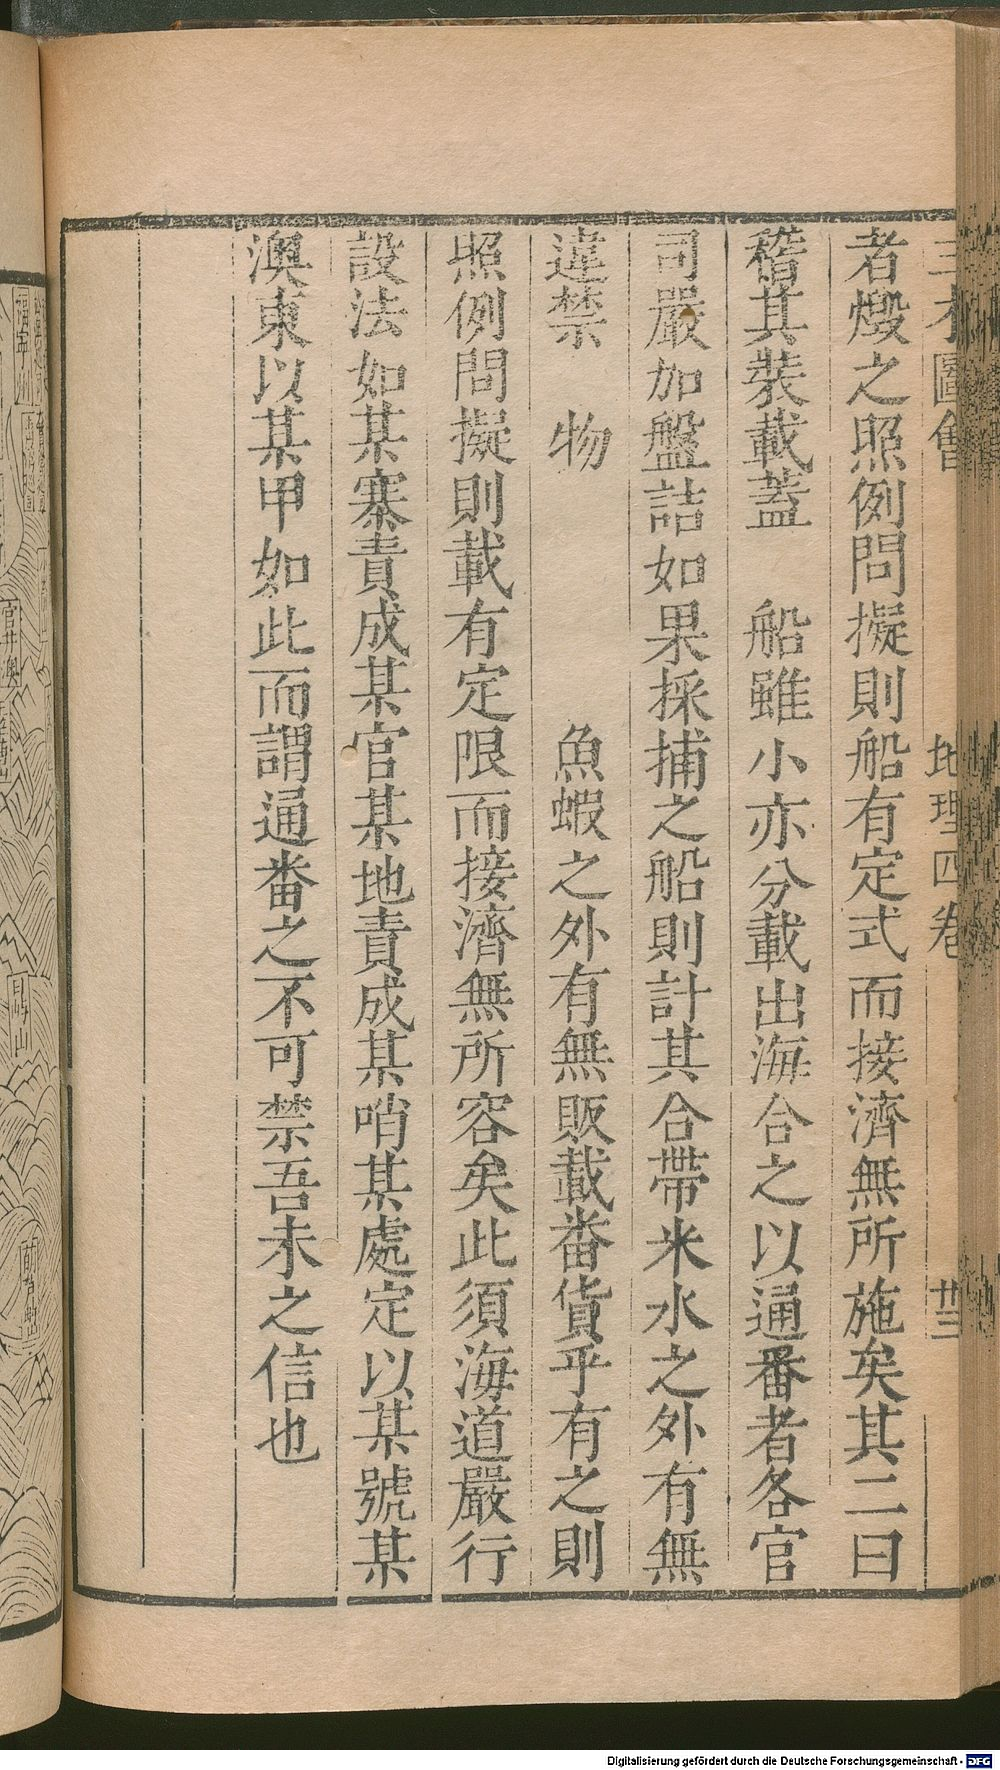 三才圖會 地理四卷 卅三
者燬之照例問擬則船有定式而接濟無所施矣其二曰
稽其裝載蓋 船雖小亦分載出海合之以通番者各官
司嚴加盤詰如果採捕之船則計其合帶米水之外有無
違禁 物 魚蝦之外有無販載番貨乎有之則
照例問擬則載有定限而接濟無所容矣此須海道嚴行
設法如某寨責成某官某地責成某哨某處定以某號某
澳東以某甲如此而謂通番之不可禁吾未之信也
官井澳
Digitalisierung gefördert durch die Deutsche Forschungsgemeinschaft - DFG